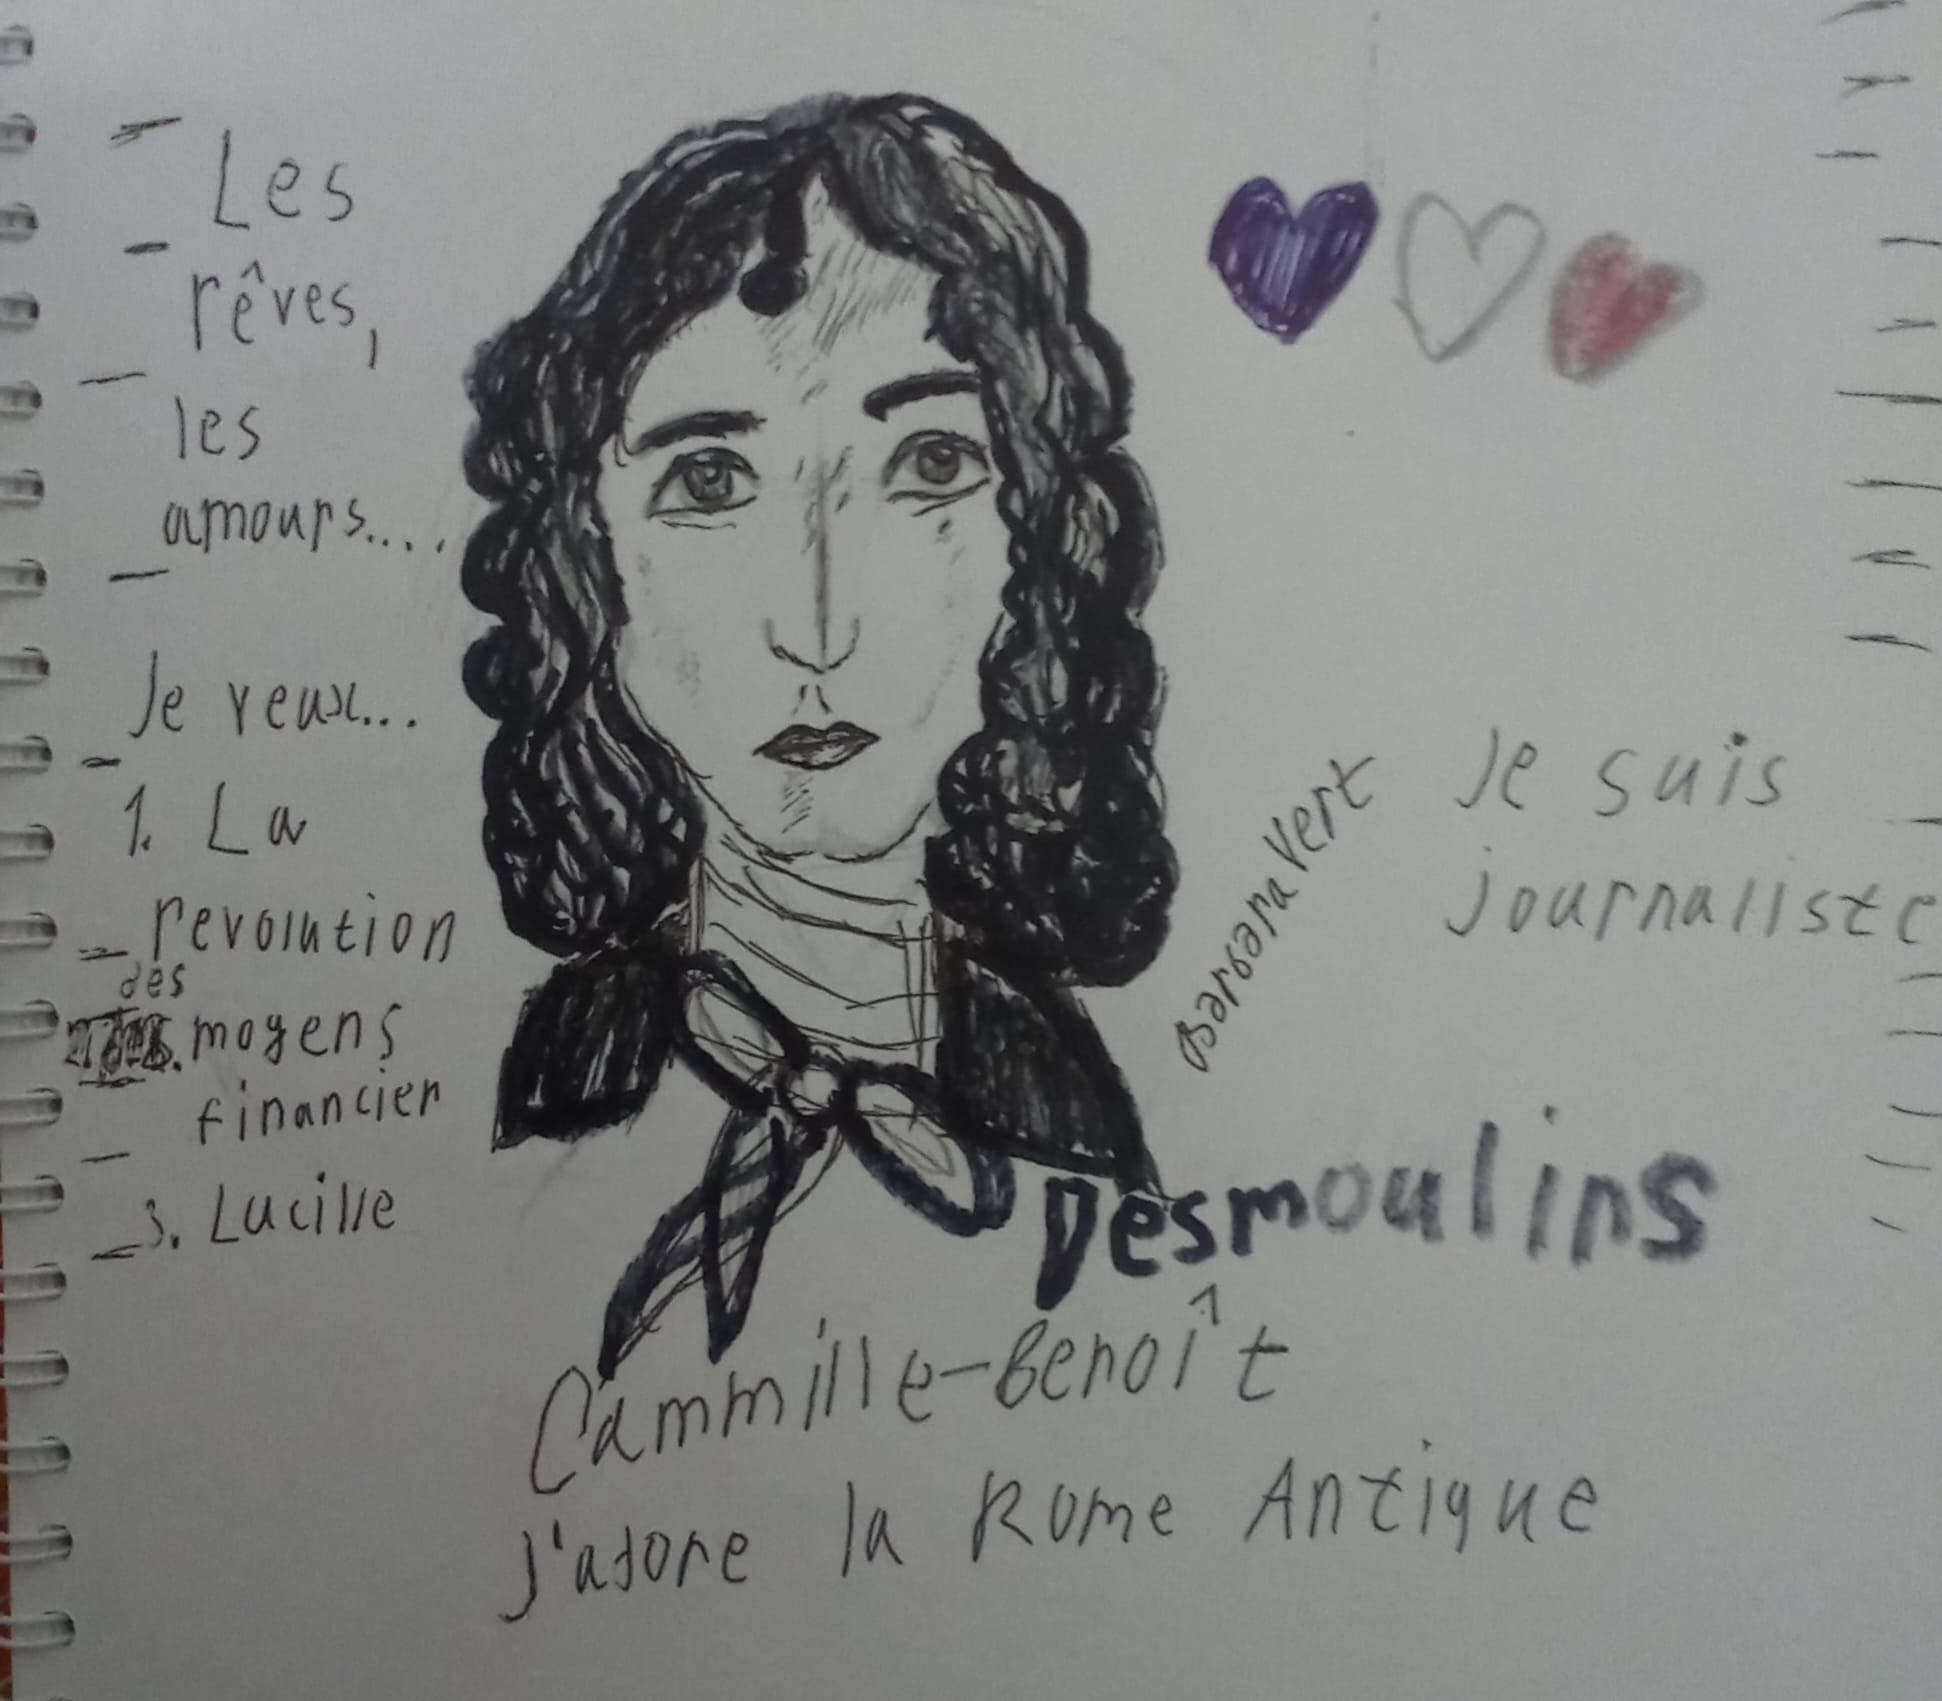 Les
rêves,
les
amours....
Je veux...
1. La
revolution
des
moyens
financier
3. Lucille
Barbara Vert
Je suis
journaliste
Desmoulins
Cammille-Benoît
J'adore la Rome Antique